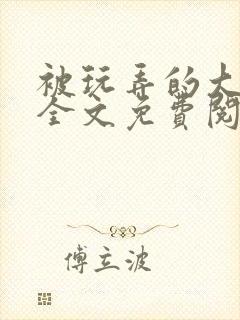 被玩弄的大
全文免費閱
傅立波